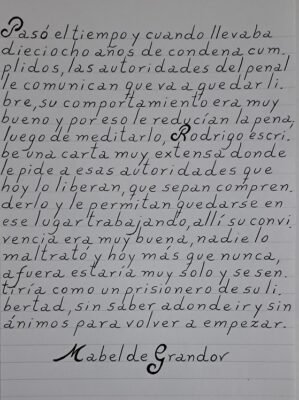 Pasó el tiempo y cuando llevaba
dieciocho años de condena cum.
plidos, las autoridades del penal
le comunican que va a quedar li.
bre, su comportamiento era muy
bueno y por eso le reducían la pena,
luego de meditarlo, Rodrigo escri.
be una carta muy extensa donde
le pide a esas autoridades que
hoy lo liberan, que sepan compren.
derlo y le permitan quedarse en
ese lugar trabajando, allí su convi.
vencia era muy buena, nadie lo
maltrató y hoy mas que nunca,
afuera estaría muy solo y se sen.
tiría como un prisionero de su li.
bertad, sin saber adonde ir y sin
ánimos para volver a empezar.
Mabel de Grandov